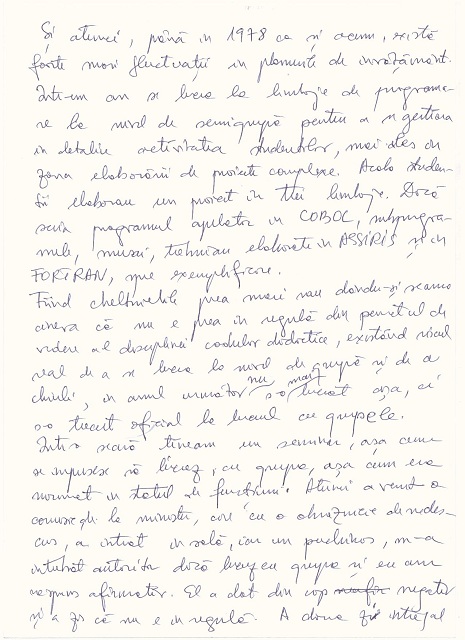 Și atunci, până în 1978 ca și acum, există
foarte mari fluctuații în planurile de învățământ.
Într-un an se lucra la limbaje de programa-
re la nivel de semigrupă pentru a se gestiona
în detaliu activitatea studenților, mai ales în
zona elaborării de proiecte complexe. Acolo studen-
ții elaborau un proiect în trei limbaje. Dacă
scriau programul apelator în COBOL, subprogra-
mele, musai, trebuiau elaborate în ASSIRIS și în
FORTRAN, spre exemplificare.
Fiind cheltuielile prea mari sau dându-și seama
cineva că nu e prea în regulă din punctul de
vedere al disciplinei cadrelor didactice, existând riscul
real de a se lucra la nivel de grupă și de a
chiuli, în anul următor nu s-a mai lucrat așa, ci
s-a trecut oficial la lucrul cu grupele.
Într-o seară țineam un seminar, așa cum
se impusese să lucrez, cu grupa, așa cum era
normat în statul de funcțiuni. Atunci a venit o
comisie de la minister, care cu o obrăznicie de nedes-
cris, a intrat în sală, iar un puchinos, m-a
întrebat autoritar dacă lucrez cu grupa și eu am
răspuns afirmativ. El a dat din cap negativ
și a zis că nu e în regulă. A doua zi întregul